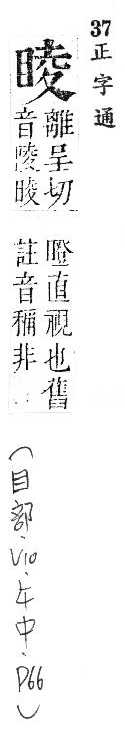 37 正字通
睖
離呈切
音陵睖
瞪直視也舊
註音稱非
(目部.V10.午中.P66)